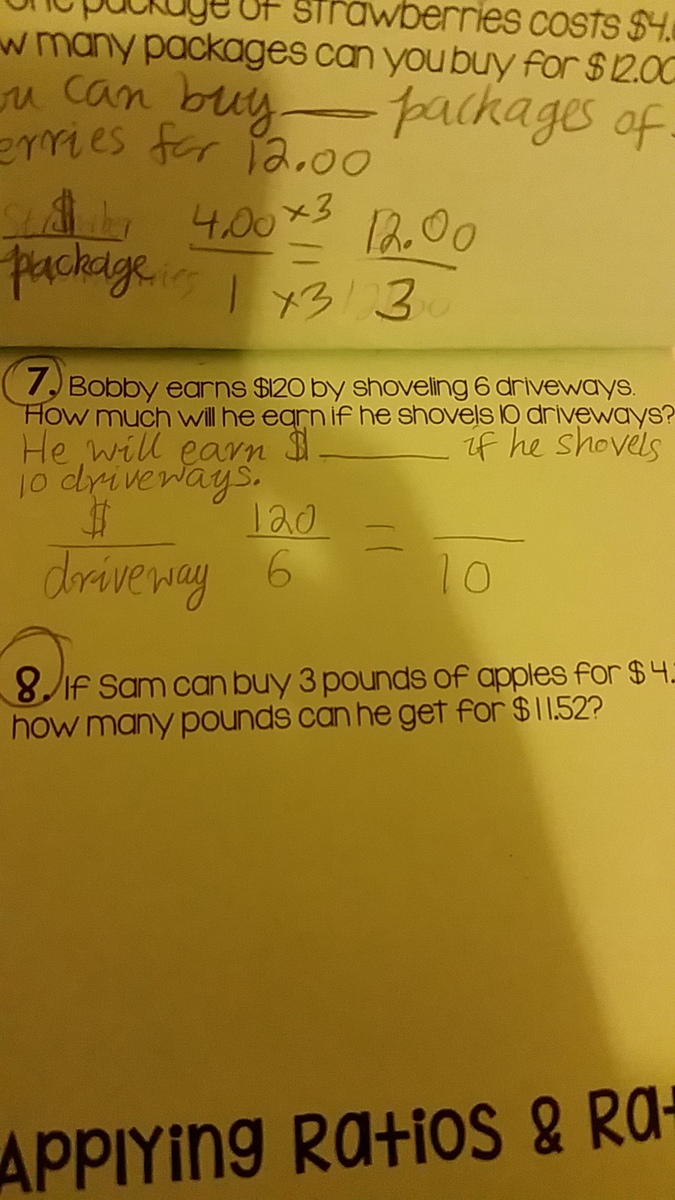 one package of strawberries costs $4.
w many packages can you buy for $12.00
ou can buy ___ packages of
erries for 12.00
$ 4.00 x3 12.00
package = 
1 x3 3
7. Bobby earns $120 by shoveling 6 driveways.
How much will he earn if he shovels 10 driveways?
He will earn $ ______ if he shovels
10 driveways.
$ 120 = ___
driveway 6 10
8. If Sam can buy 3 pounds of apples for $4.
how many pounds can he get for $11.52?
Applying Ratios & Rat